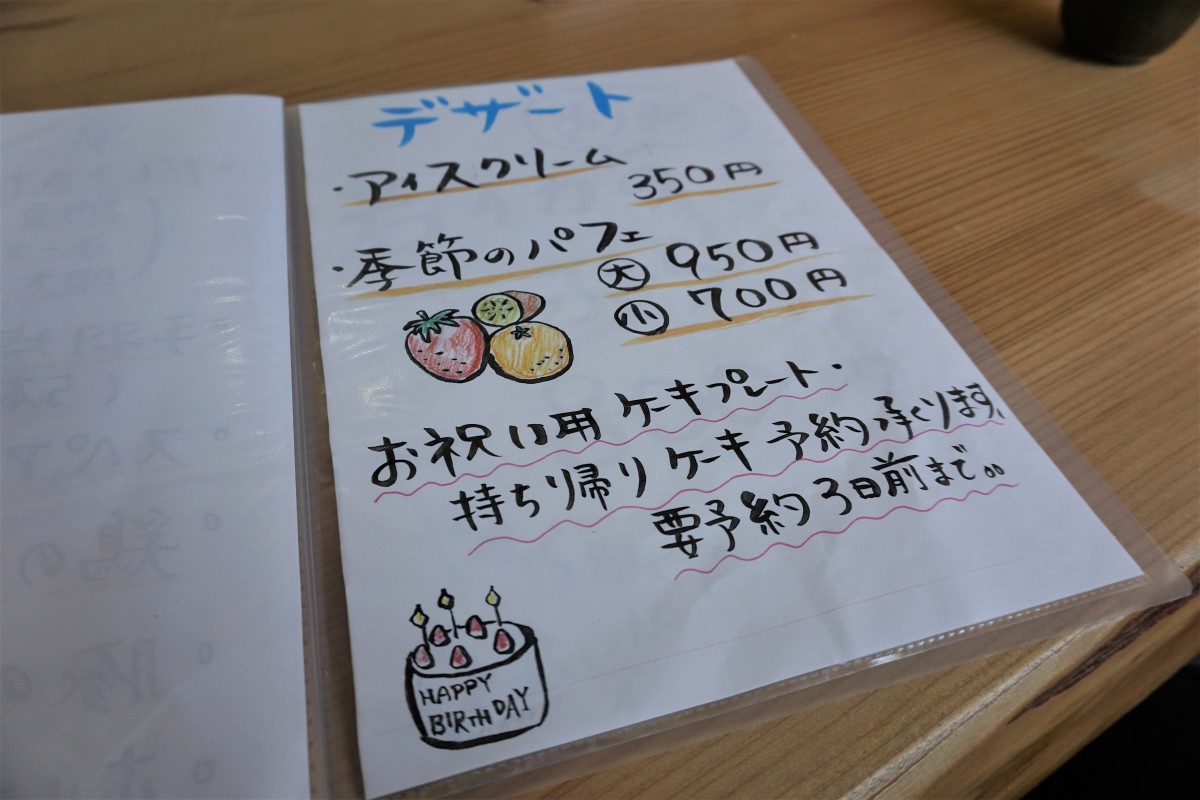 デザート
・アイスクリーム 350円
・季節のパフェ ㊤大 950円
小 700円
お祝い用 ケーキプレート・
持ち帰り ケーキ予約承ります、
要予約3日前まで。。
HAPPY
BIRTHDAY